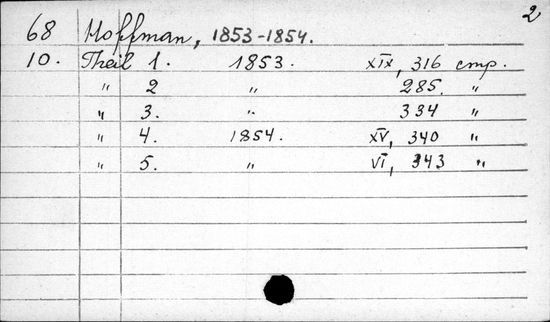 2
68 Hoffman, 1853-1854.
10. Theil 1. 1853. XIX, 316 стр.
" " 2 " 285. "
" 3. " 334 "
" 4. 1854. XV, 340 "
" 5. " VI, 343 "